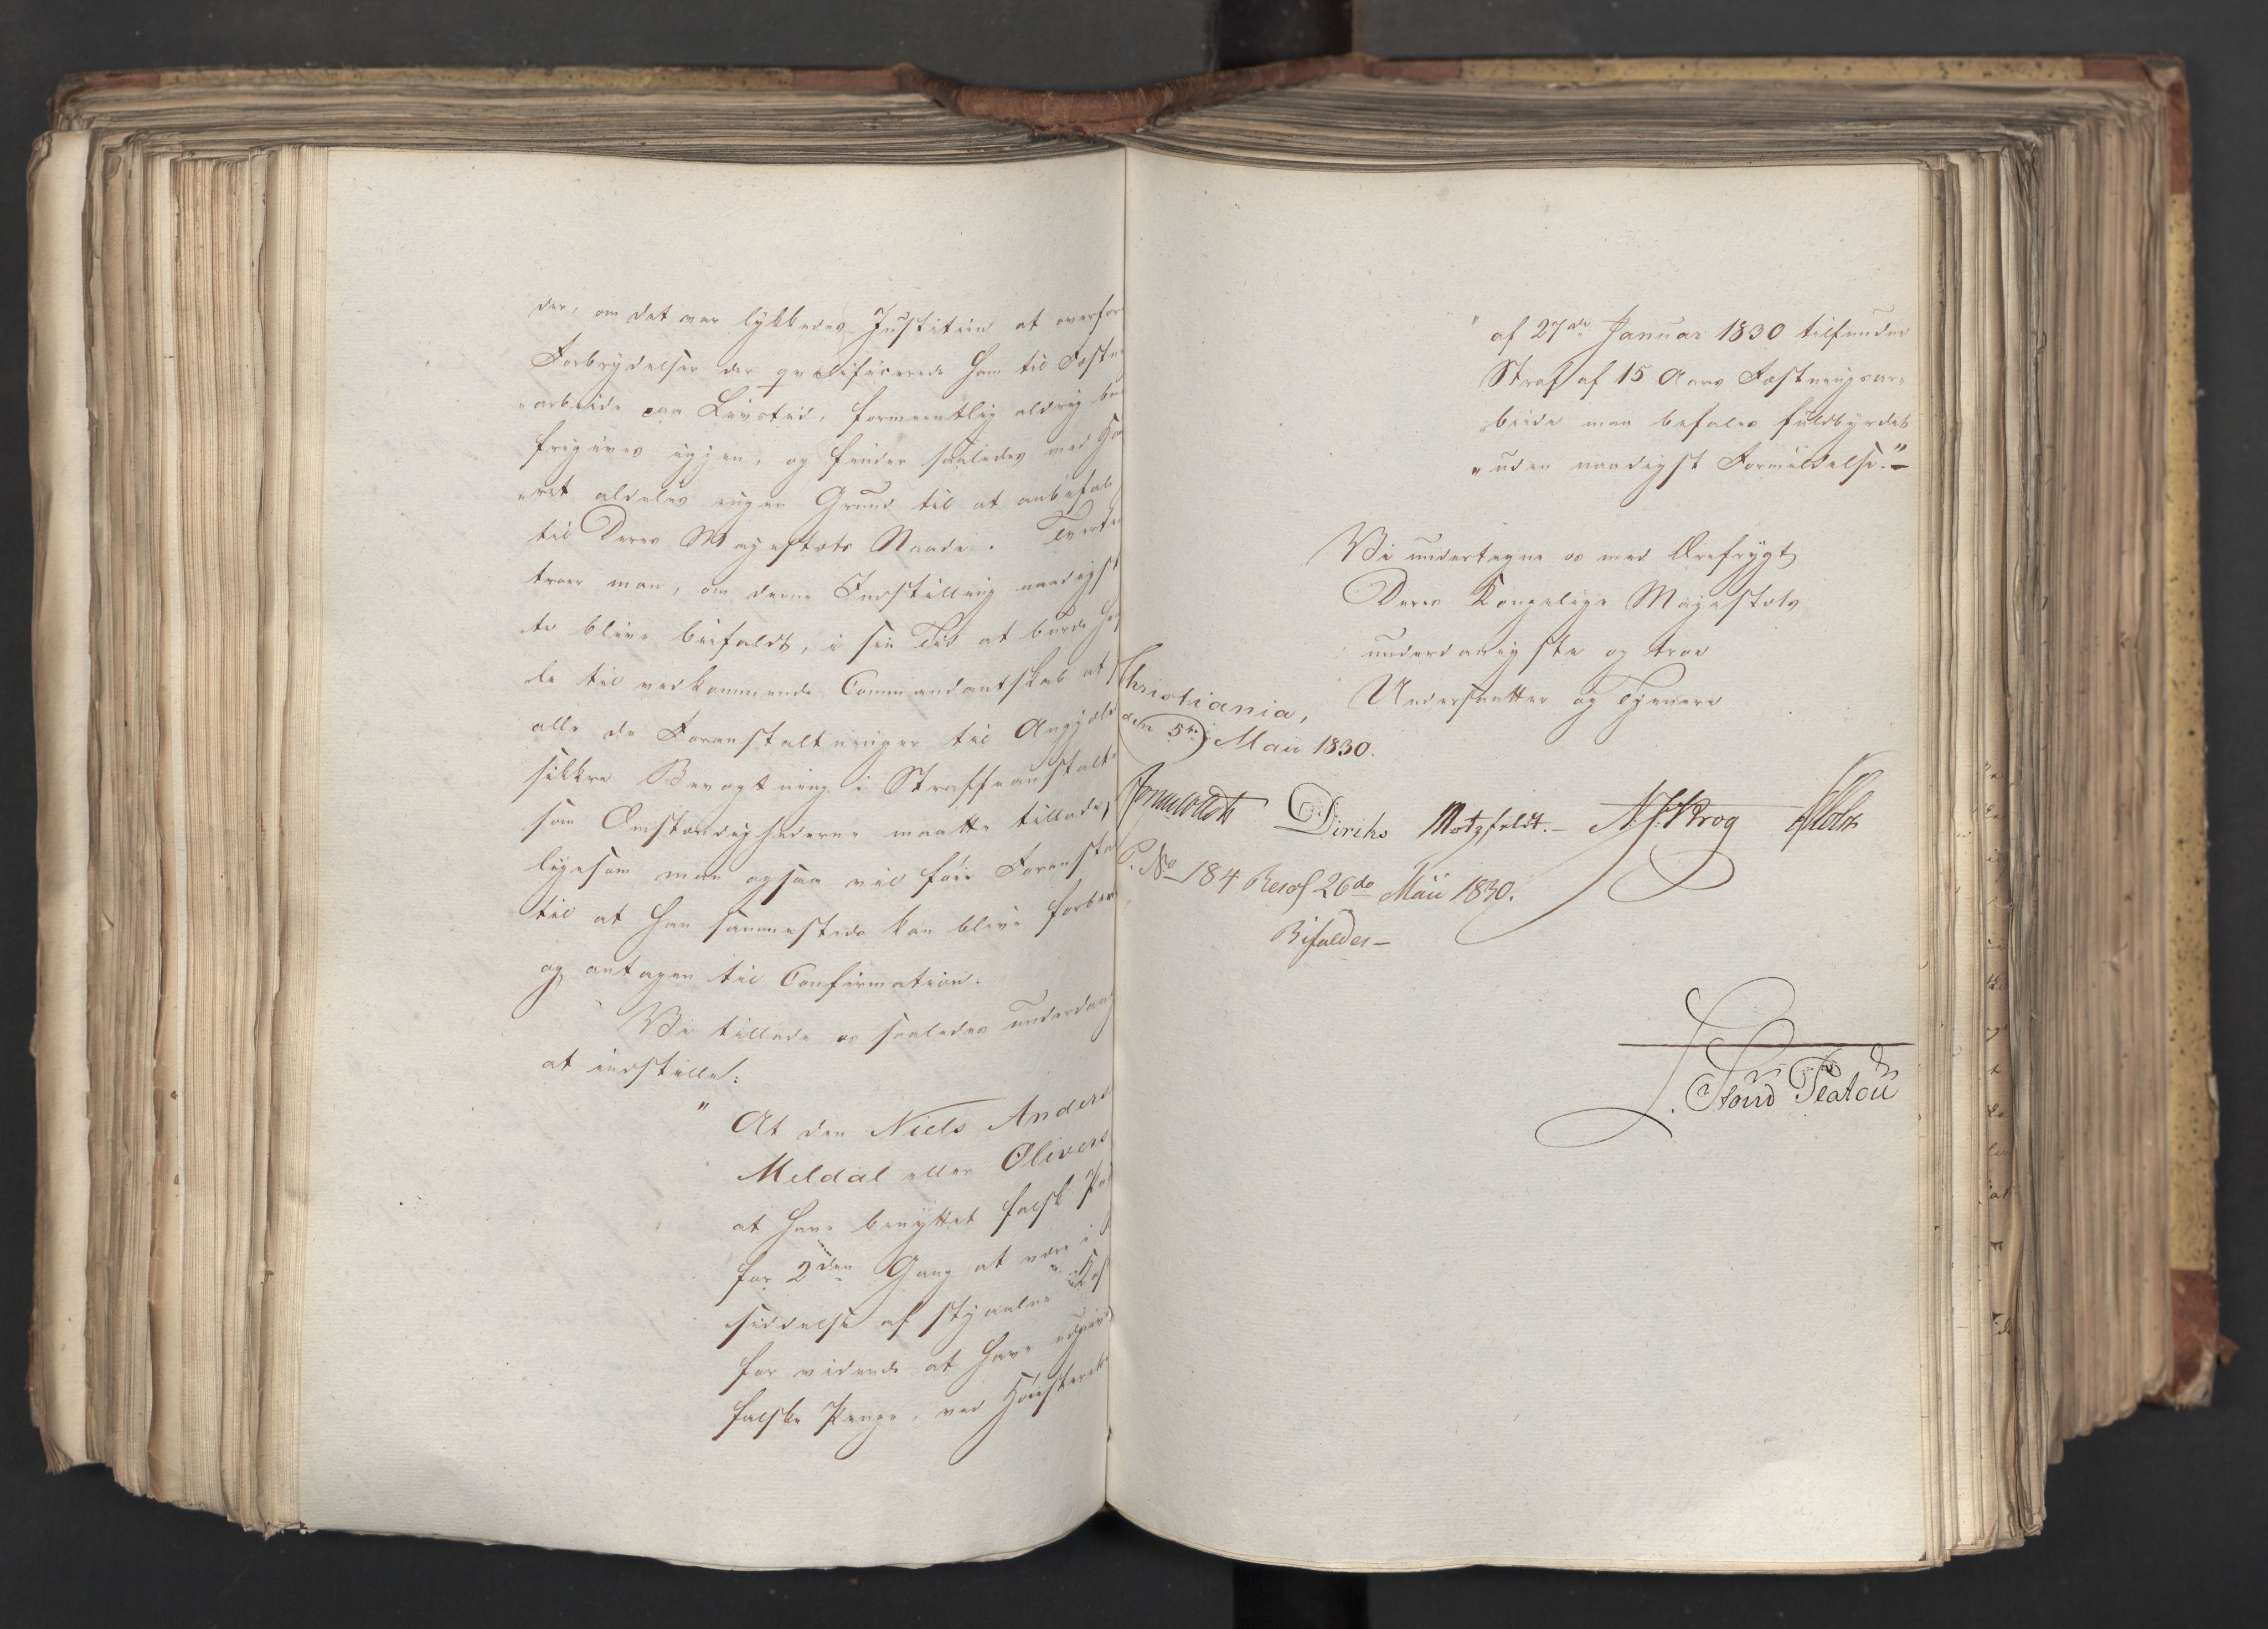 der, om det var lykkedes Justitien at overfør
Forbrydelser der qvalificerede ham til Fæstn
„arbeide paa Livstid, formeentlig aldrig bu
frigives igjen, og finder saaledes med Høi
„ret aldeles ingen Grund til at anbefale
til Deres Majestæts Naade. Tverti
troer man, om denne Indstilling naadigst
te blive bifaldt, i sin Tid at burde
de til vedkommende Commandantskab at
alle de Foranstaltninger til Angjæld
sikkre Bevogtning i Straffeanstalt
som Omstændighederne maatte tillade,
ligesom man ogsaa vil føie Foransta
til at han sammesteds kan blive forber
og antagen til Confirmation.
Vi tillade os saaledes underdan
at indstille:
" At den Niels Anders
Meldal eller Olivers
at have benyttet falsk Pa
for 2den Gang at være i
siddelse af stjaalne Kos
for vidende at have udgivet
falske Penge, ved Høiesterets
" af 27de Januar 1830 tilfundne
Straf af 15 Aars Fæstningsar„
beide maa befales fuldbyrdet
„uden naadigst Formildelse."–
Vi undertegne os med Ærefrygt
Deres Kongelige Majestæts
underdanigste og troe
Undersaatter og Tjenere
Christiania,
den 5te Maii 1830.
Diriks Motzfeldt.– N. J. Krog Holst
P. No 184 Resol 26de Maii 1830.
Bifaldes–
Stoud Platou